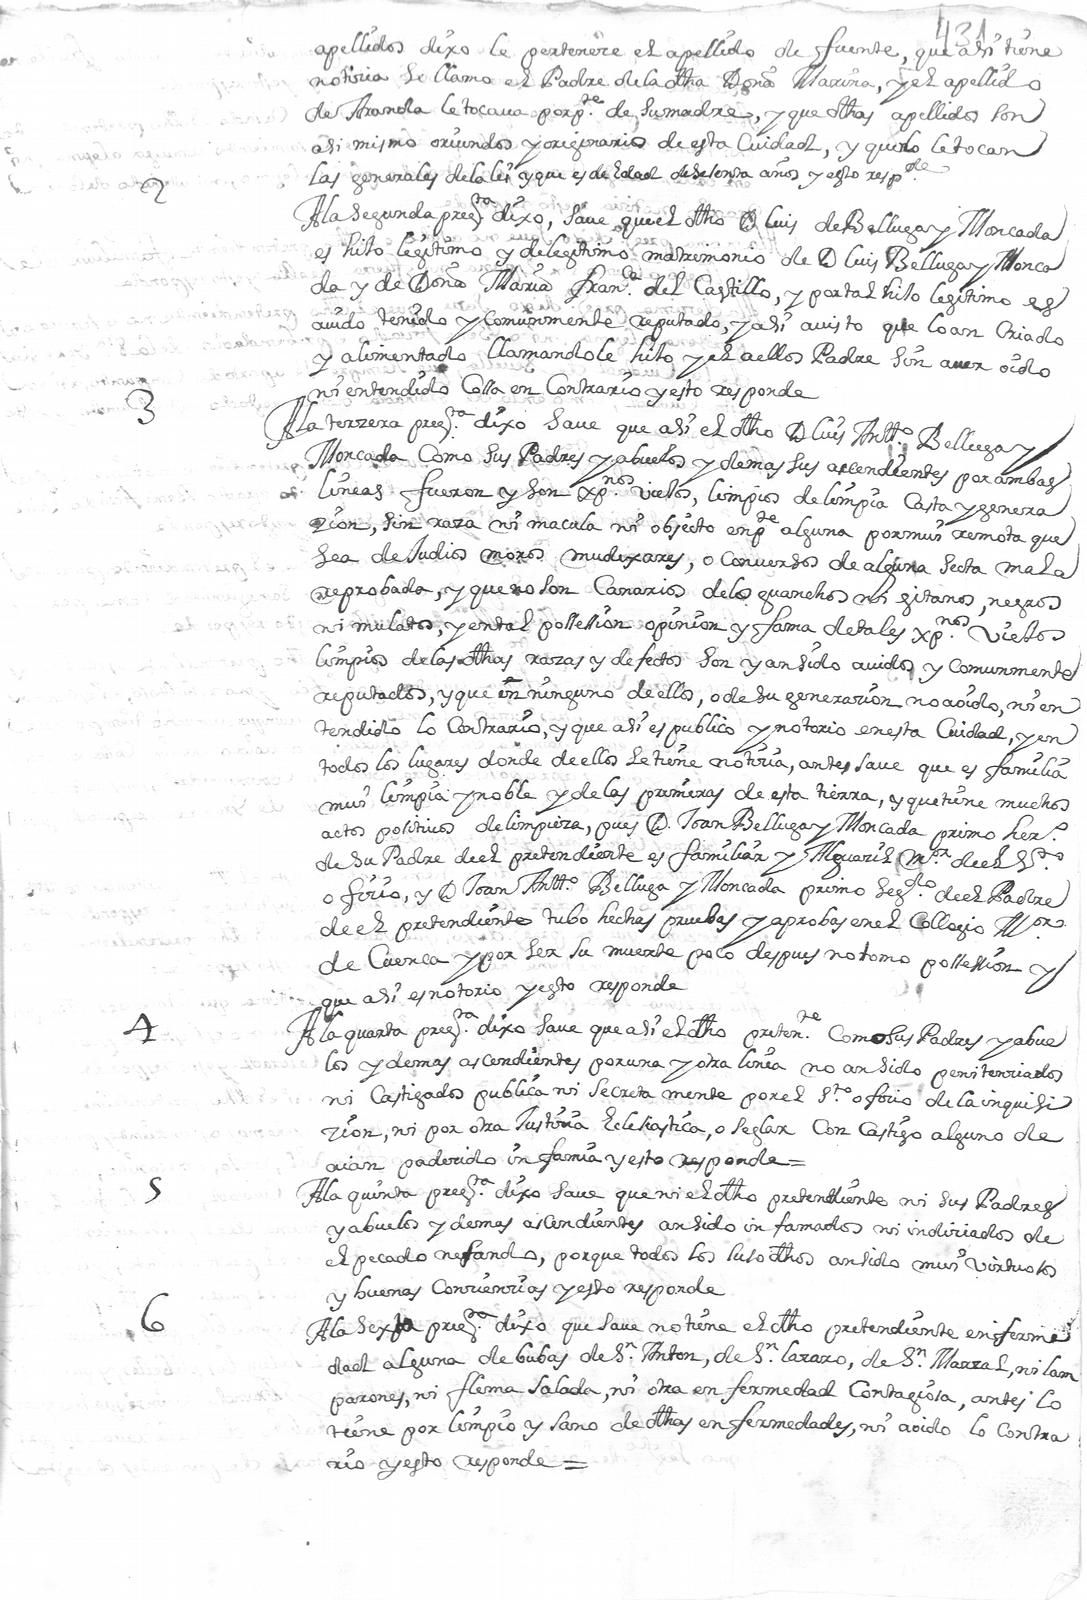 431
apellidos dixo le pertenece el apellido de fuente, que asi tiene
noticia se llamo el Padre de la dha Doña Marina, y el apellido
de Aranda le tocaua por pte. de su madre, y que dhos apellidos son
asi mismo oriundos y originarios de esta Ciudad, y que no le tocan
las generales de la lei y que es de edad de setenta años y esto respde.
2
A la segunda pregta. dixo, saue que el dho D Luis de Belluga y Moncada
es hito legitimo y de legitimo matrimonio de D Luis Belluga y Monca
da y de Doña Maria Franda. del Castillo, y por tal hito legitimo es
auido tenido y comunmente reputado, y asi auisto que lo an criado
y alimentado llamandole hito y el a ellos Padre sin auer oido
ni entendido cossa en contrario y esto responde
3
A la terzera pregta. dixo saue que asi el dho D Luis Antto. Belluga y
Moncada como sus Padres y abuelos y demas sus ascendientes por ambas
lineas fueron y son xpnos. viejos, limpios de limpia casta y genera
zion, sin raza ni macula ni objecto en pte alguna por mui remota que
sea de Judios moros mudexares, o conuersos de alguna secta mala
reprobada, y que no son Canarios de los guanchos ni gitanos, negros
ni mulatos, y en tal possession opinion y fama de tales xpnos. viejos
limpios de las dhas razas y defectos son y an sido auidos y comunmente
reputados, y que en ninguno de ello, o de su generacion no a oido, ni en
tendido lo contrario, y que asi es publico y notorio en esta Ciudad, y en
todos los lugares donde de ellos se tiene noticia, antes saue que es familia
mui limpia y noble y de las primeras de esta tierra, y que tiene muchos
actos positiuos de limpieza, pues D. Joan Belluga y Moncada primo hero.
de su Padre de el pretendiente es familiar y Alguazil Mor. de el Sto.
oficio, y D Joan Antto. Belluga y Moncada primo segdo. de el Padre
de el pretendiente tubo hechas pruebas y aprobas en el Collegio Mor.
de Cuenca y por ser su muerte poco despues no tomo possession y
que asi es notorio y esto responde
4
A la quarta pregta. dixo saue que asi el dho preten.te como sus Padres y abue
los y demas ascendientes por una y otra linea no an sido penitenciados
ni castigados publica ni secreta mente por el Sto. oficio de la inquisi
zion, ni por otra Justicia Eclesiastica, o seglar con castigo alguno de
aian padecido infamia y esto responde=
5
A la quinta pregta. dixo saue que ni el dho pretendiente ni sus Padres
y abuelos y demas ascendientes an sido in famados ni indiciados de
el pecado nefando, porque todos los susodhos an sido mui virtuosos
y buenas conciencias y esto responde
6
A la sexta pregta. dixo que saue no tiene el dho pretendiente enferme
dad alguna de bubas de Sn. Anton, de Sn. lazaro, de Sn. Marzal, ni lam
parones, ni flema salada, ni otra en fermedad contagiosa, antes lo
tiene por limpio y sano de dhas en fermedades, ni a oido lo contra
rio y esto responde=